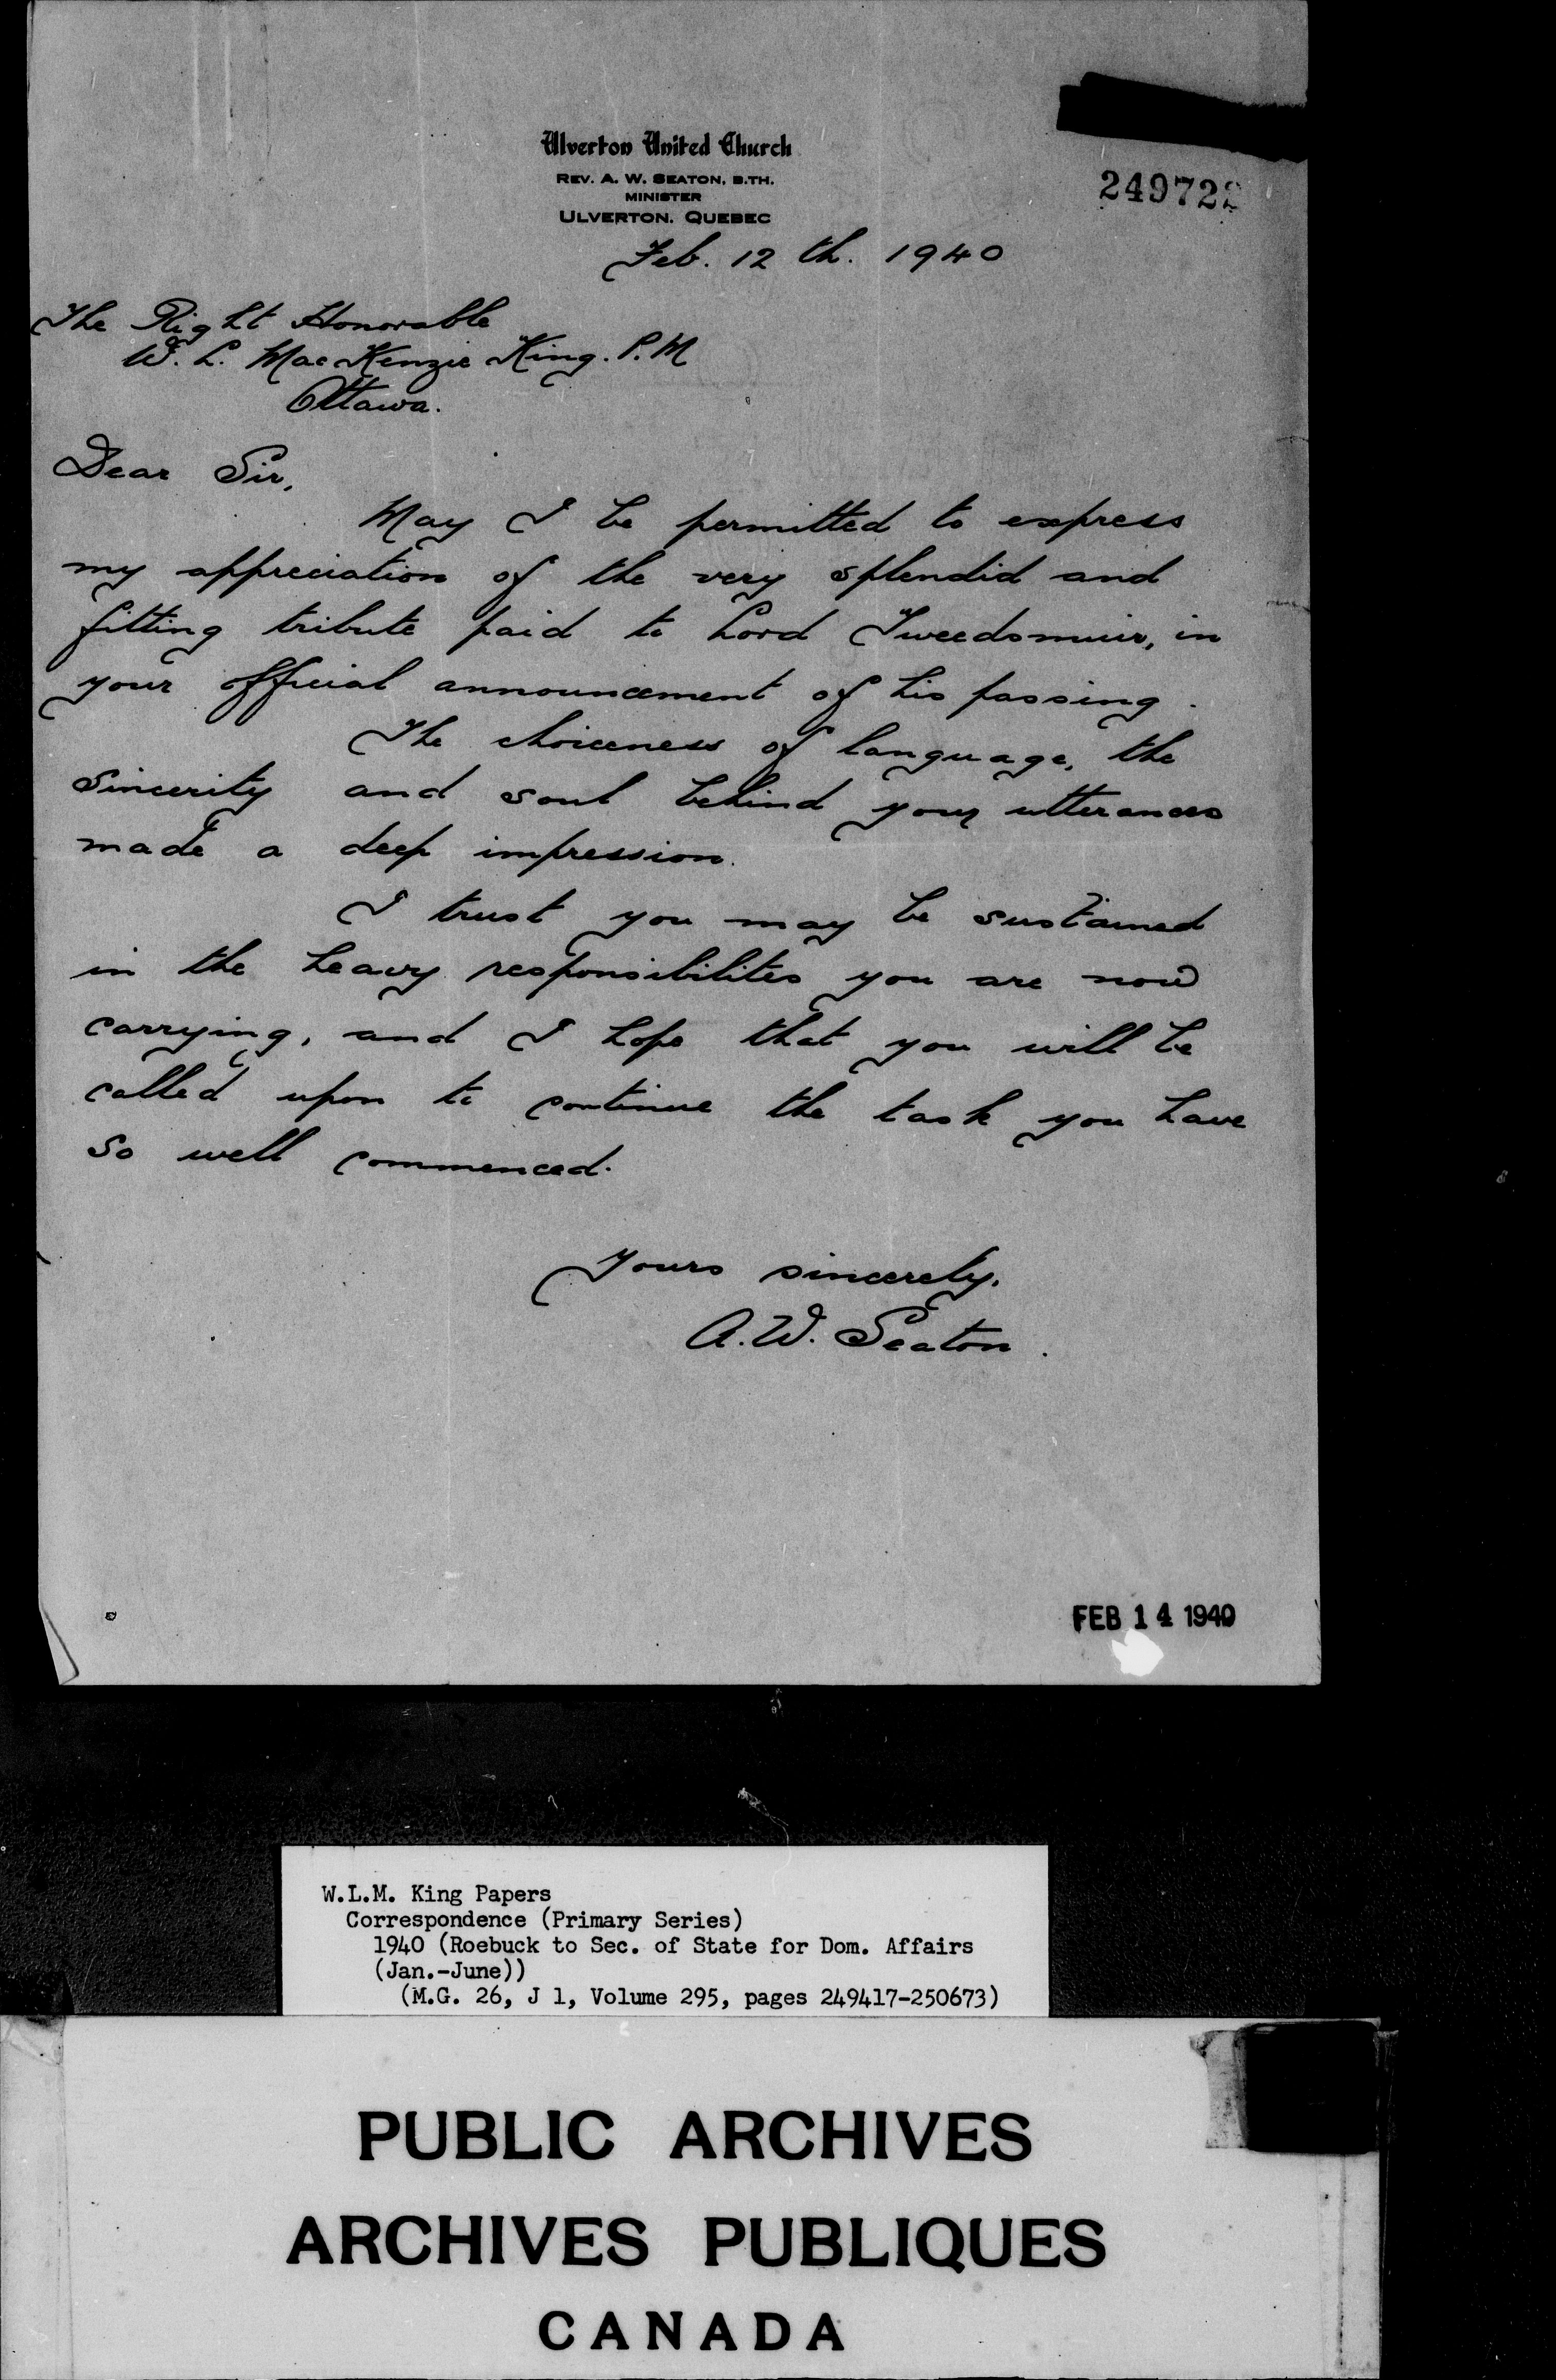 Ulverton United Church
REV. A. W. SEATON, B.TH.
MINISTER
ULVERTON, QUEBEC
249722
Feb. 12 th. 1940
The Right Honorable
W. L. MacKenzie King. P.M
Ottawa.
Dear Sir,
May I be permitted to express
my appreciation of the very splendid and
fitting tribute paid to Lord Tweedsmuir, in
your official announcement of his passing.
The choiceness of language, the
sincerity and soul behind your utterances
made a deep impression.
I trust you may be sustained
in the heavy responsibilites you are now
carrying, and I hope that you will be
called upon to continue the task you have
so well commenced.
Yours sincerely,
A.W. Seaton.
FEB 14 1940
W.L.M. King Papers
Correspondence (Primary Series)
1940 (Roebuck to Sec. of State for Dom. Affairs
(Jan.-June))
(M.G. 26, J 1, Volume 295, pages 249417-250673)
PUBLIC ARCHIVES
ARCHIVES PUBLIQUES
CANADA